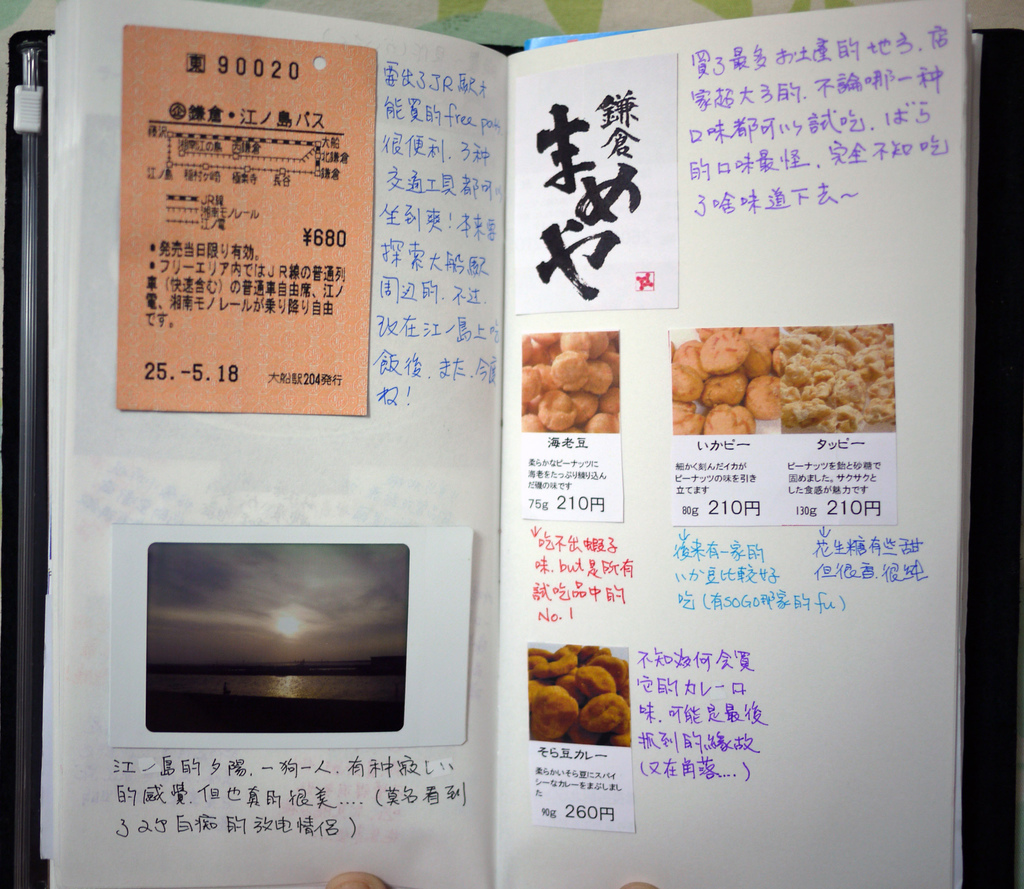 東 90020
企 鎌倉・江ノ島パス
藤沢
大船
湘南江の島 西鎌倉
北鎌倉
鎌倉
江ノ島 稲村ヶ崎 極楽寺 長谷
JR線
湘南モノレール
江ノ電
¥680
•発売当日限り有効。
•フリーエリア内ではJR線の普通列
車(快速含む)の普通車自由席、江ノ
電、湘南モノレールが乗り降り自由
です。
25.-5.18 大船駅204発行
要出了JR駅才
能買的free pass.
很便利.3种
交通工具都可以
坐到爽!本来要
探索大船駅
周边的.不过.
改在江ノ島上吃
飯後.また.今度
ね!
江ノ島的夕陽.一狗一人.有种寂しい
的感覺.但也真的很美....(莫名看到
了2对白痴的放电情侣)
鎌倉
まめや
買了最多お土產的地方.店
家超大方的.不論哪一种
口味都可以試吃.ばら
的口味最怪.完全不知吃
了啥味道下去~
海老豆
柔らかなピーナッツに
海老をたっぷり練り込ん
だ磯の味です
75g 210円
いかピー
細かく刻んだイカが
ピーナッツの味を引き
立てます
80g 210円
タッピー
ピーナッツを飴と砂糖で
固めました。サクサクと
した食感が魅力です
130g 210円
吃不出蝦子
味.but是所有
試吃品中的
No.1
後来有一家的
いか豆比較好
吃(有SOGO那家的fu)
花生糖有些甜
但很香.很純
そら豆カレー
柔らかいそら豆にスパイ
シーなカレーをまぶしまし
た
90g 260円
不知為何会買
它的カレー口
味.可能是最後
抓到的緣故
(又在角落....)